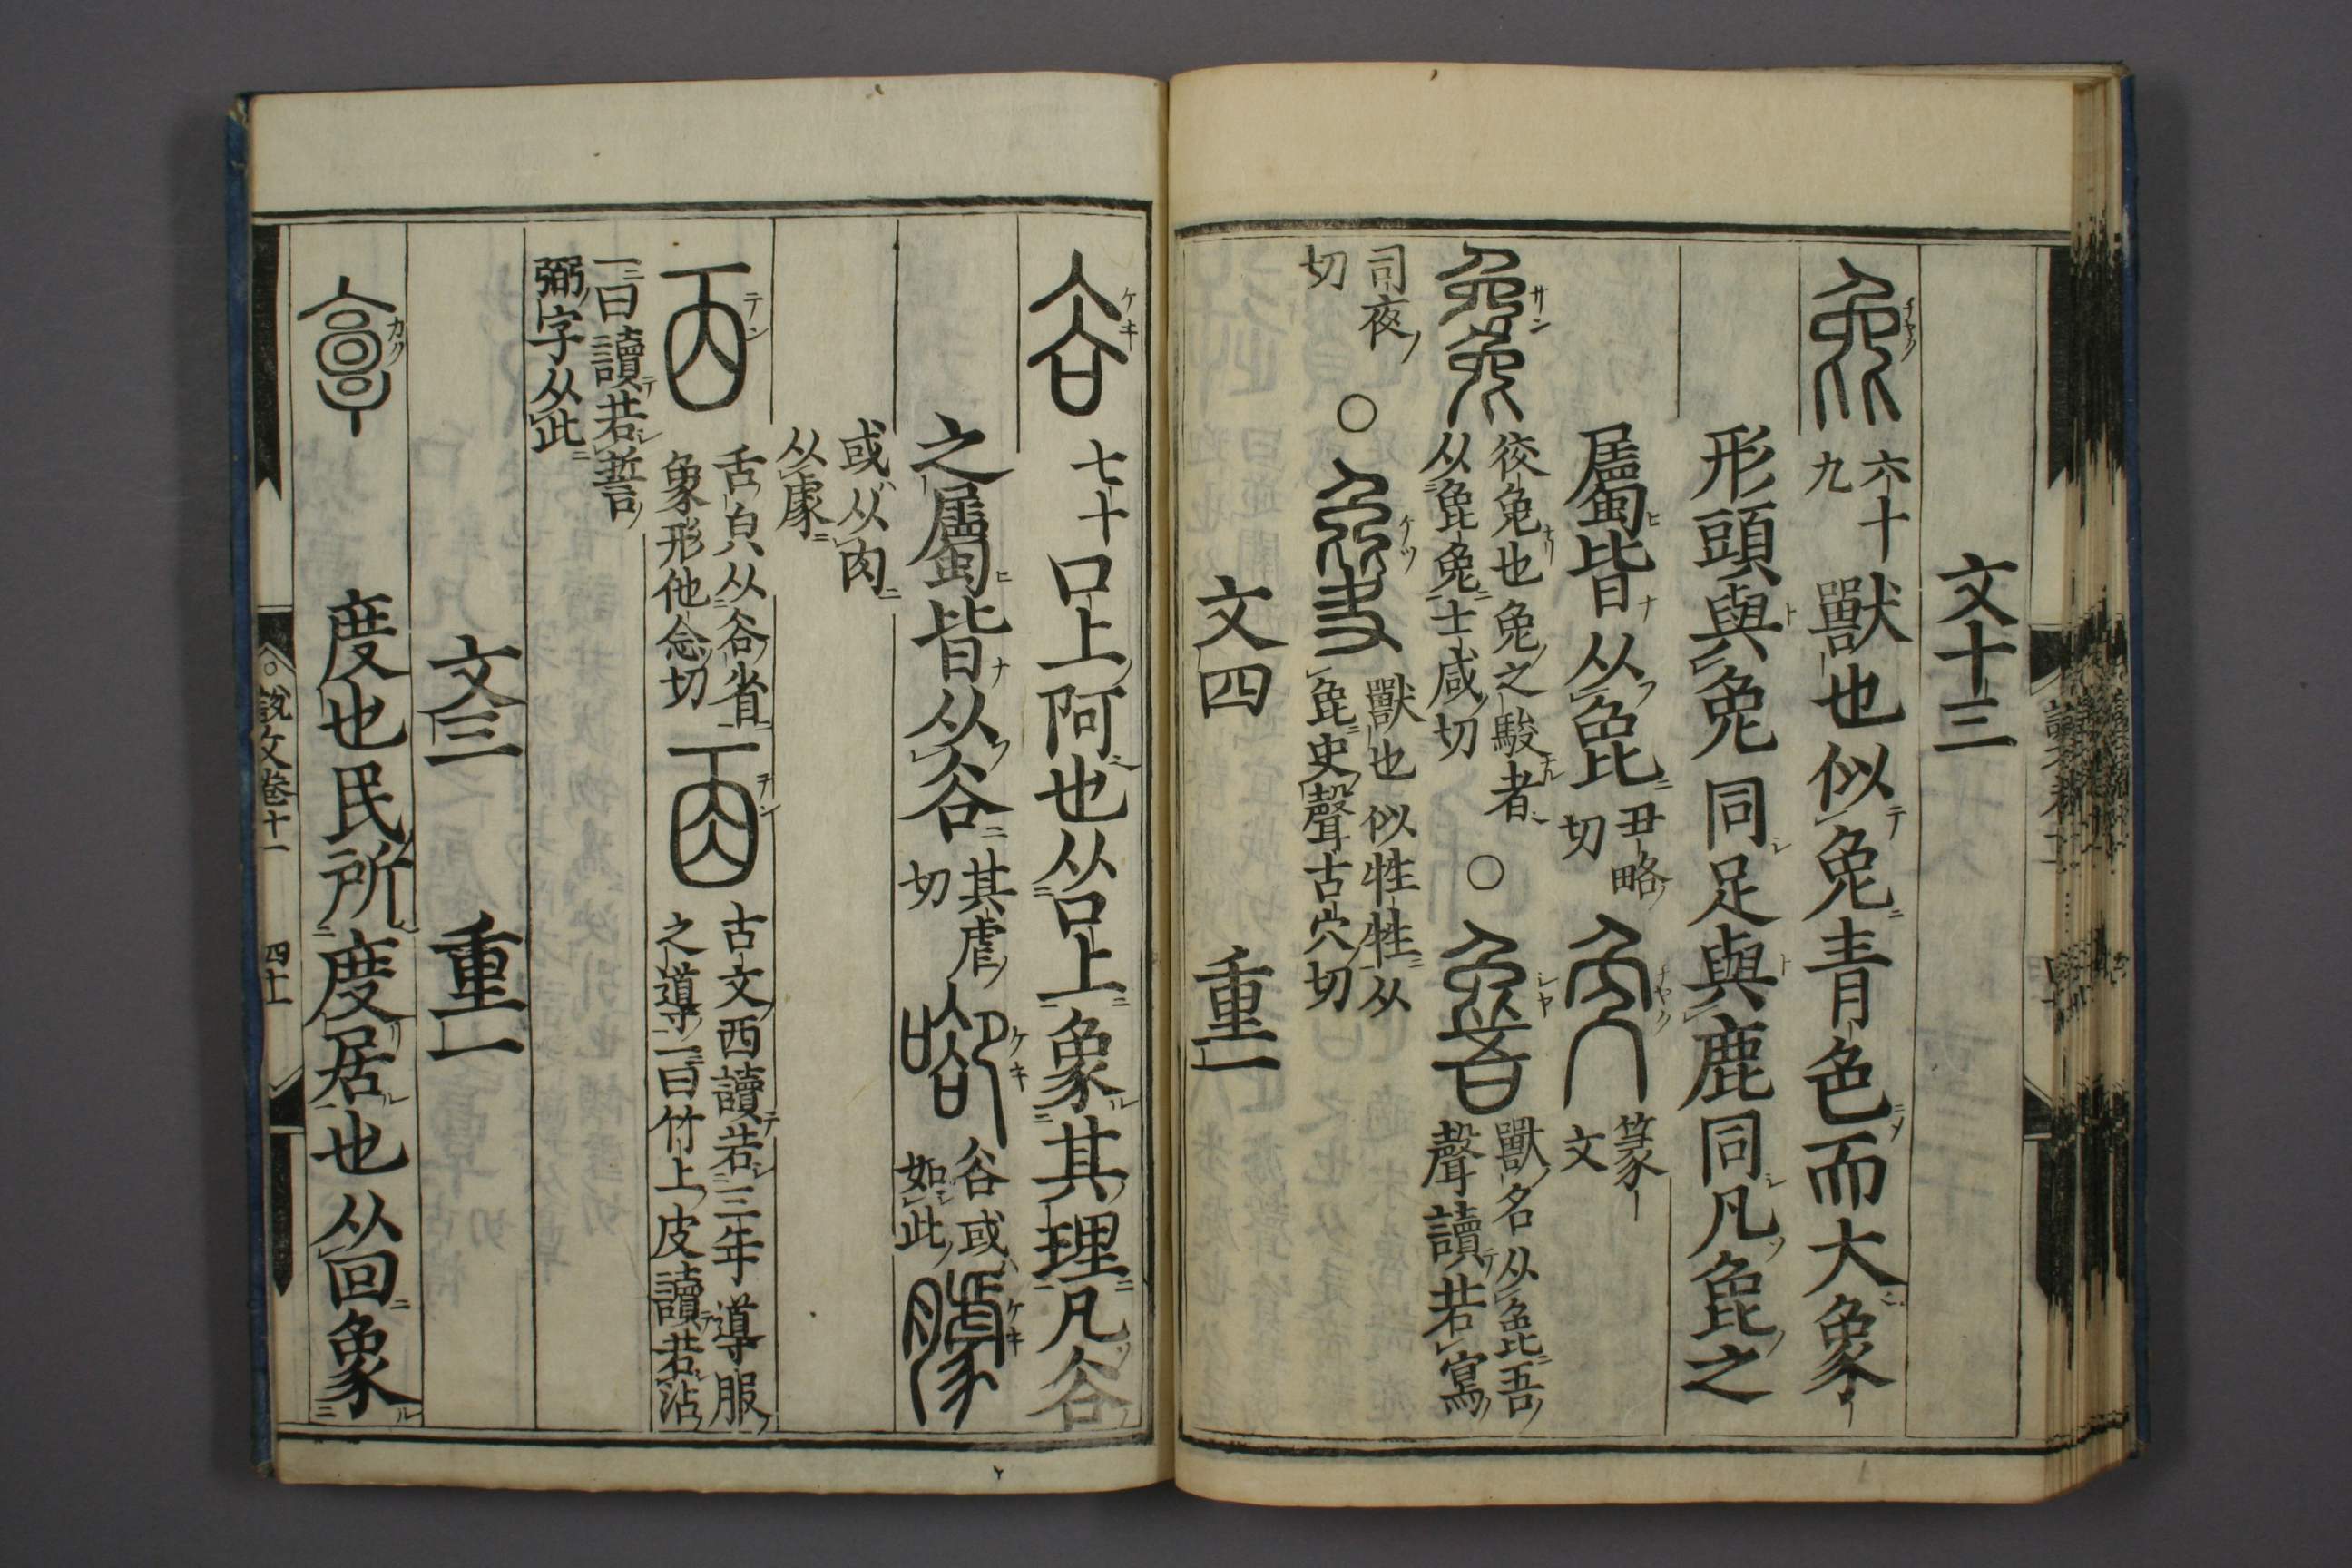 文十三
六十九 獸也似兔青色而大象
形頭與兔同足與鹿同凡㲋之
屬皆从㲋 丑略切 篆文
㕙兔也兔之駿者
从㲋兔士咸切
○
獸名从㲋吾
聲讀若寫
司夜
切
○
獸也似牲牲从
㲋史聲古穴切
文四 重一
七十 口上阿也从口上象其理凡谷
之屬皆从谷 其虐切 谷或如此
或从肉
从豦
舌皃从谷省
象形他念切
古文西讀若三年導服
之導一曰竹上皮讀若沾
一曰讀若誓
弼字从此
文三 重一
度也民所度居也从回象
說文卷十一 四十一